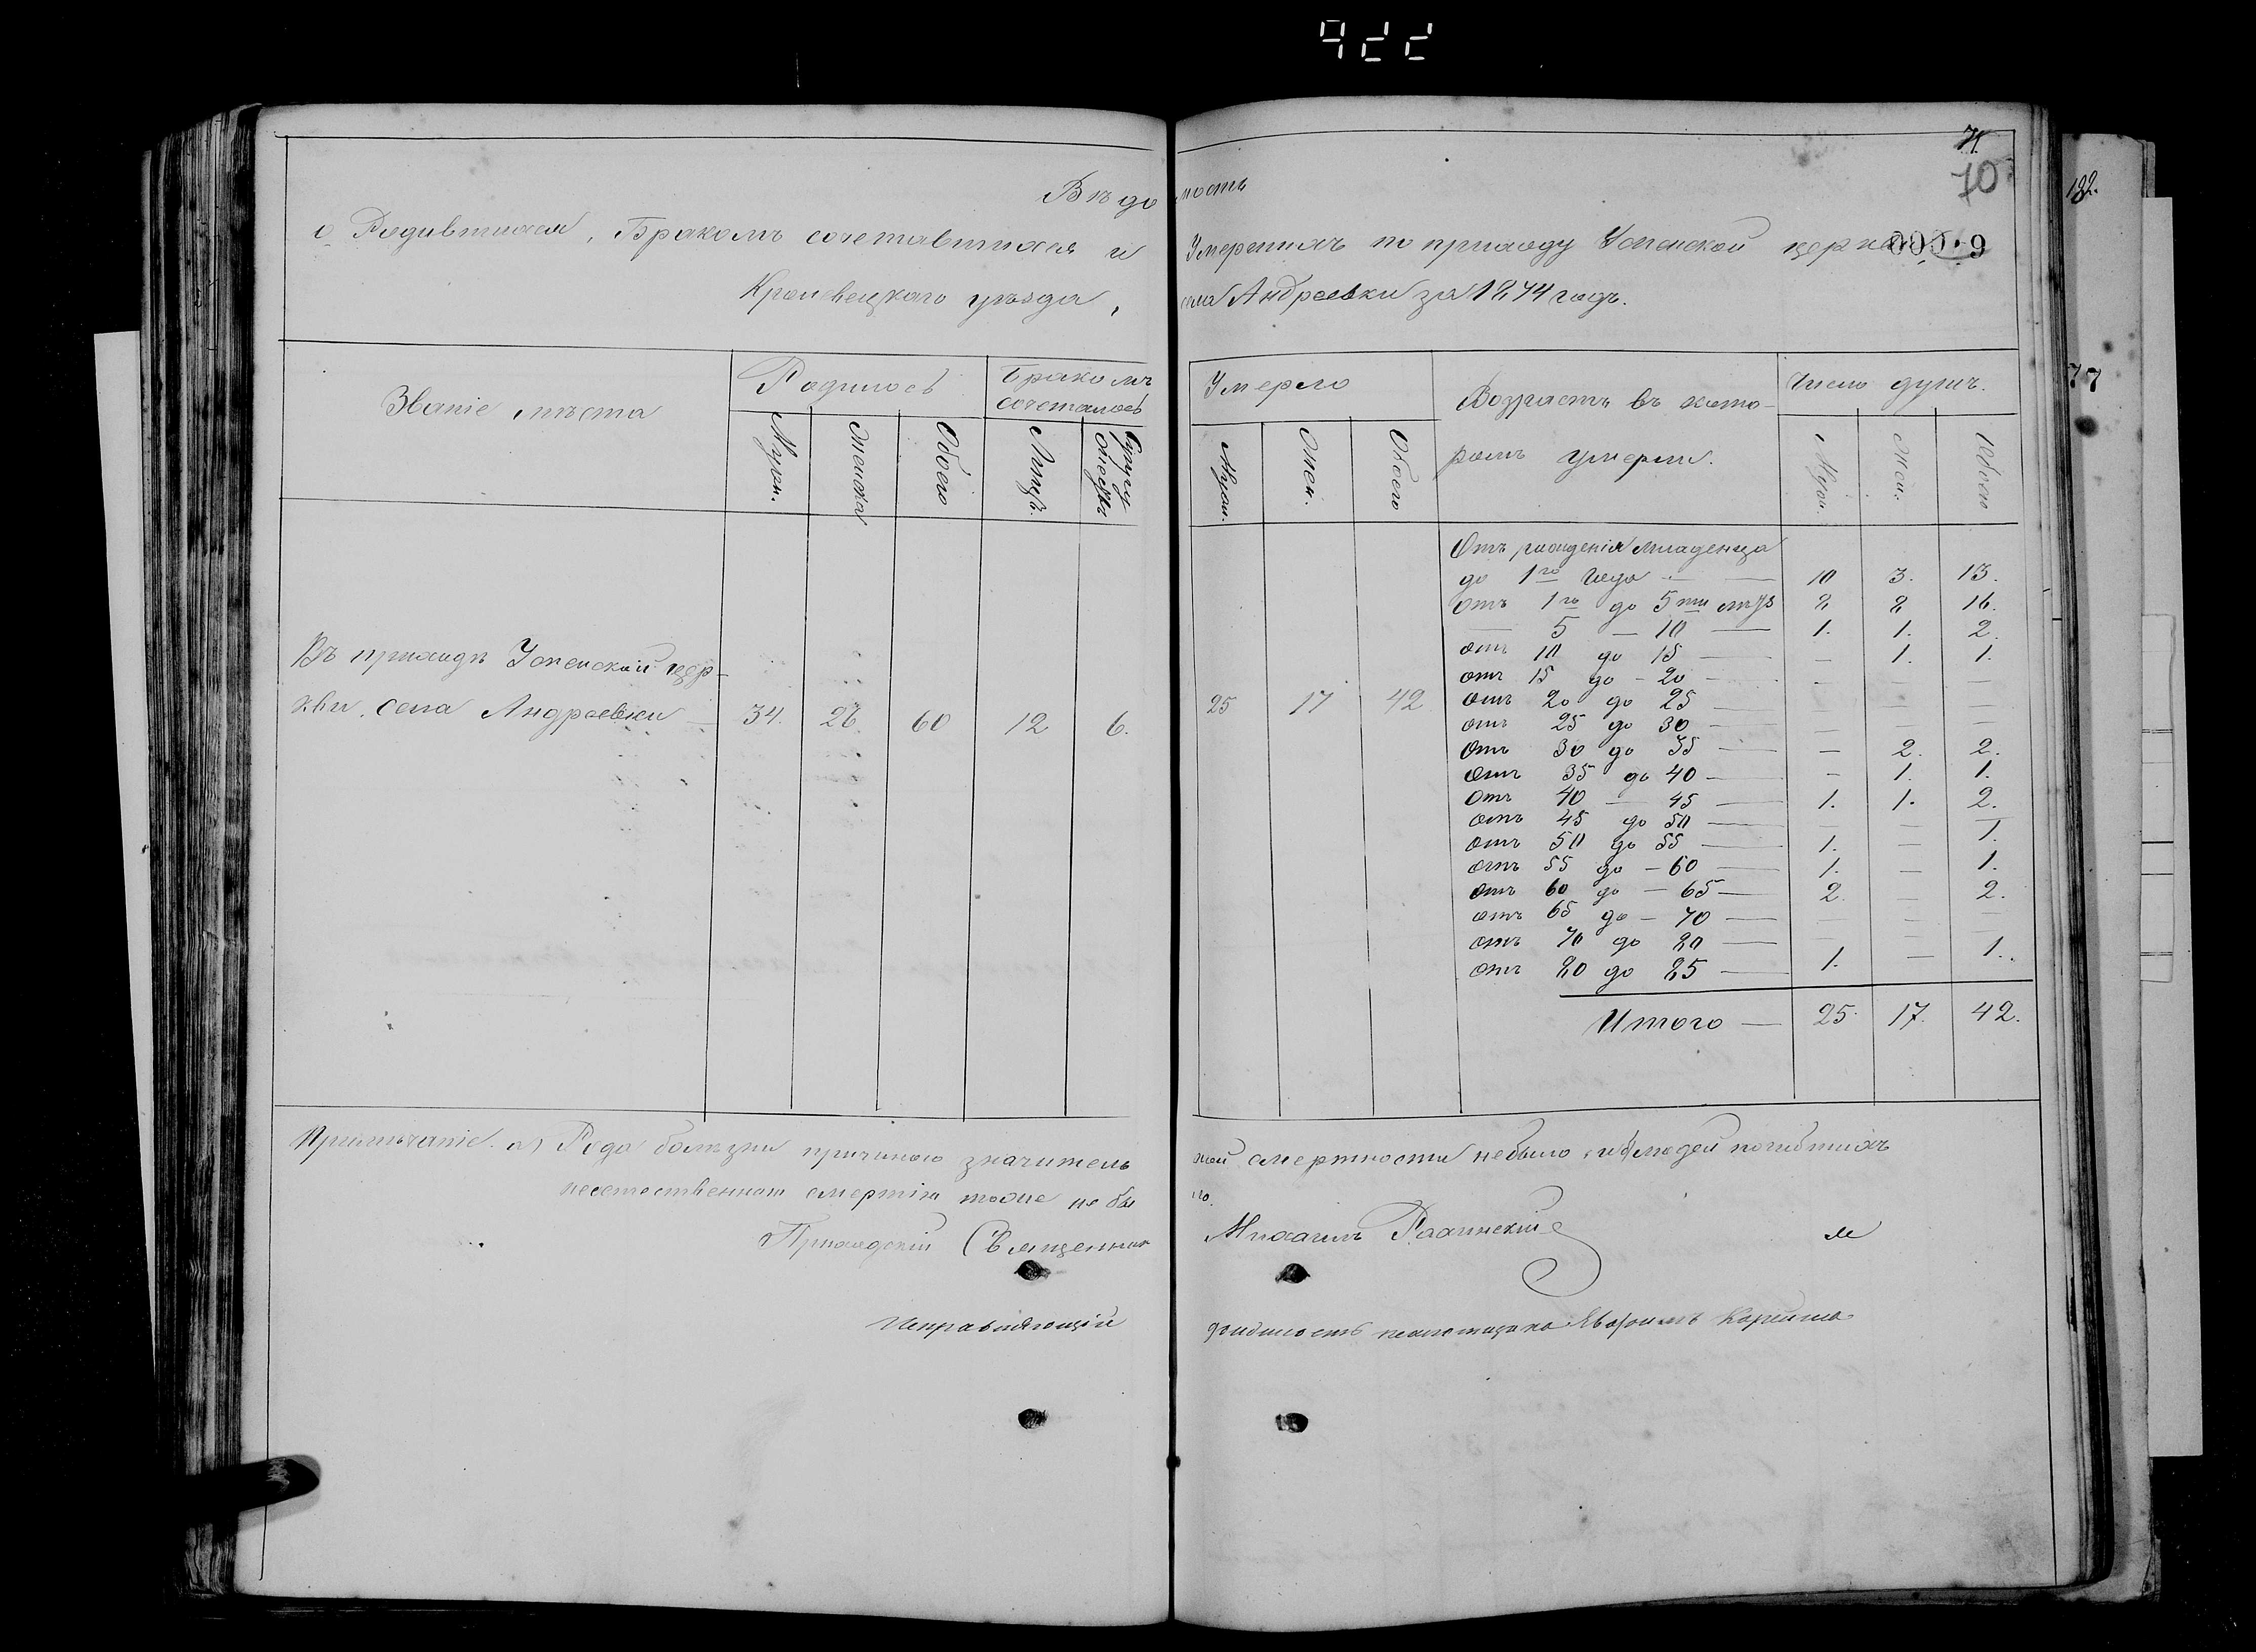 922
71
70
Вѣдо мость
о Родившихся, Бракомъ сочетавшихся и Умершихъ по приходу Успенской церкви
Кролевецкаго уѣзда, села Андреевки за 1874 годъ.
182.
77
Званіе мѣста
Родилось
Бракомъ сочеталось
Умерло
Возрастъ въ кото-
ромъ умерли.
Число душъ.
Мужи.
Женска
Обоего
Лицъ.
Супружествъ
Мужи.
Жен.
Обоего
Мужи.
Жен.
Обоего
Отъ рожденія младенца
до 1го года — 10 3. 13.
отъ 1го до 5ти лѣтъ 8 8 16.
— 5 — 10 — 1. 1. 2.
отъ 10 до 15 — — 1. 1.
отъ 15 до - 20 — — — —
отъ 20 до 25 — — — —
отъ 25 до 30 — — — —
отъ 30 до 35 — — 2. 2.
отъ 35 до 40 — — 1. 1.
отъ 40 — 45 — 1. 1. 2.
отъ 45 до 50 — — — —
отъ 50 до 55 — 1. — 1.
отъ 55 до - 60 — 1. — 1.
отъ 60 до - 65 — 2. — 2.
отъ 65 до - 70 — — — —
отъ 70 до 80 — — — —
отъ 80 до 85 — 1. — 1.
Итого — 25. 17. 42.
Въ приходѣ Успенской цер-
кви, села Андреевки — 34. 26. 60 12 6. 25 17 42
Примѣчаніе. а) Рода болѣзни причиною значитель ной смертности небыло, и б) людей погибшихъ
неестественною смертію тоже не бы ло.
Приходскій Священник Михаилъ
Исправляющій должность псаломщика